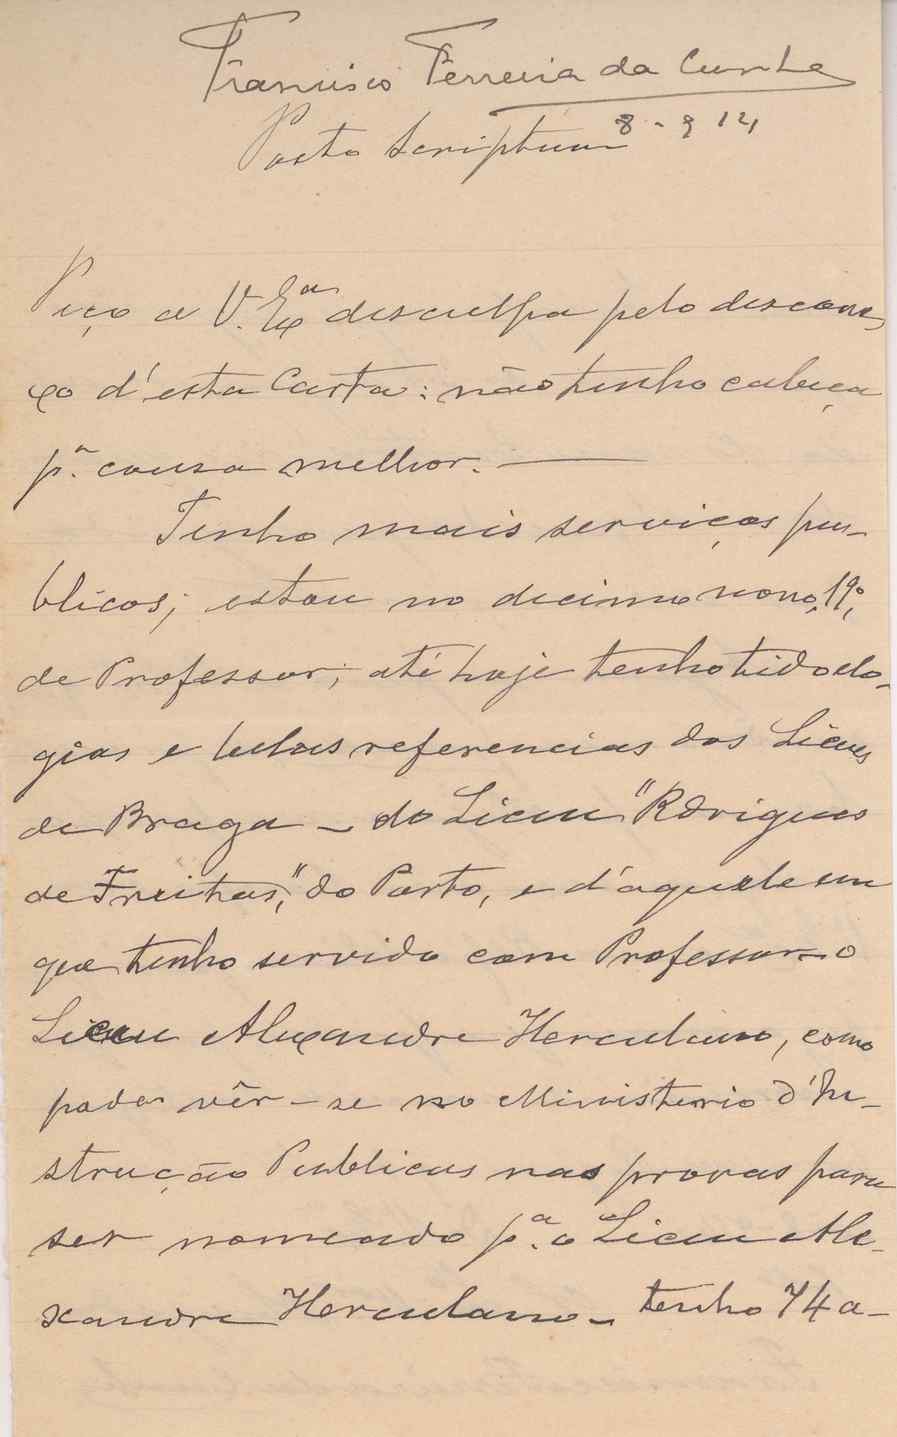 Francisco Ferreira da Cunha
Posto Scriptum 8-9 14
Peço a V. Exª desculpa pelo descone-
xo d'esta Carta: não tenho cabeça
pª. cousa melhor. —
Tenho mais serviços pu-
blicos; estou no decimo nono, 19º,
de Professor; até hoje tenho tido elo-
gios e bellas referencias dos Liceus
de Braga - do Liceu "Rodrigues
de Freitas", do Porto, e d'aquele em
que tenho servido com Professor - o
Liceu Alexandre Herculano, como
pode vêr-se no Ministerio d'In-
strução Publicas nas provas para
ser nomeado pª. o Liceu Ale-
xandre Herculano - tenho 74 a-